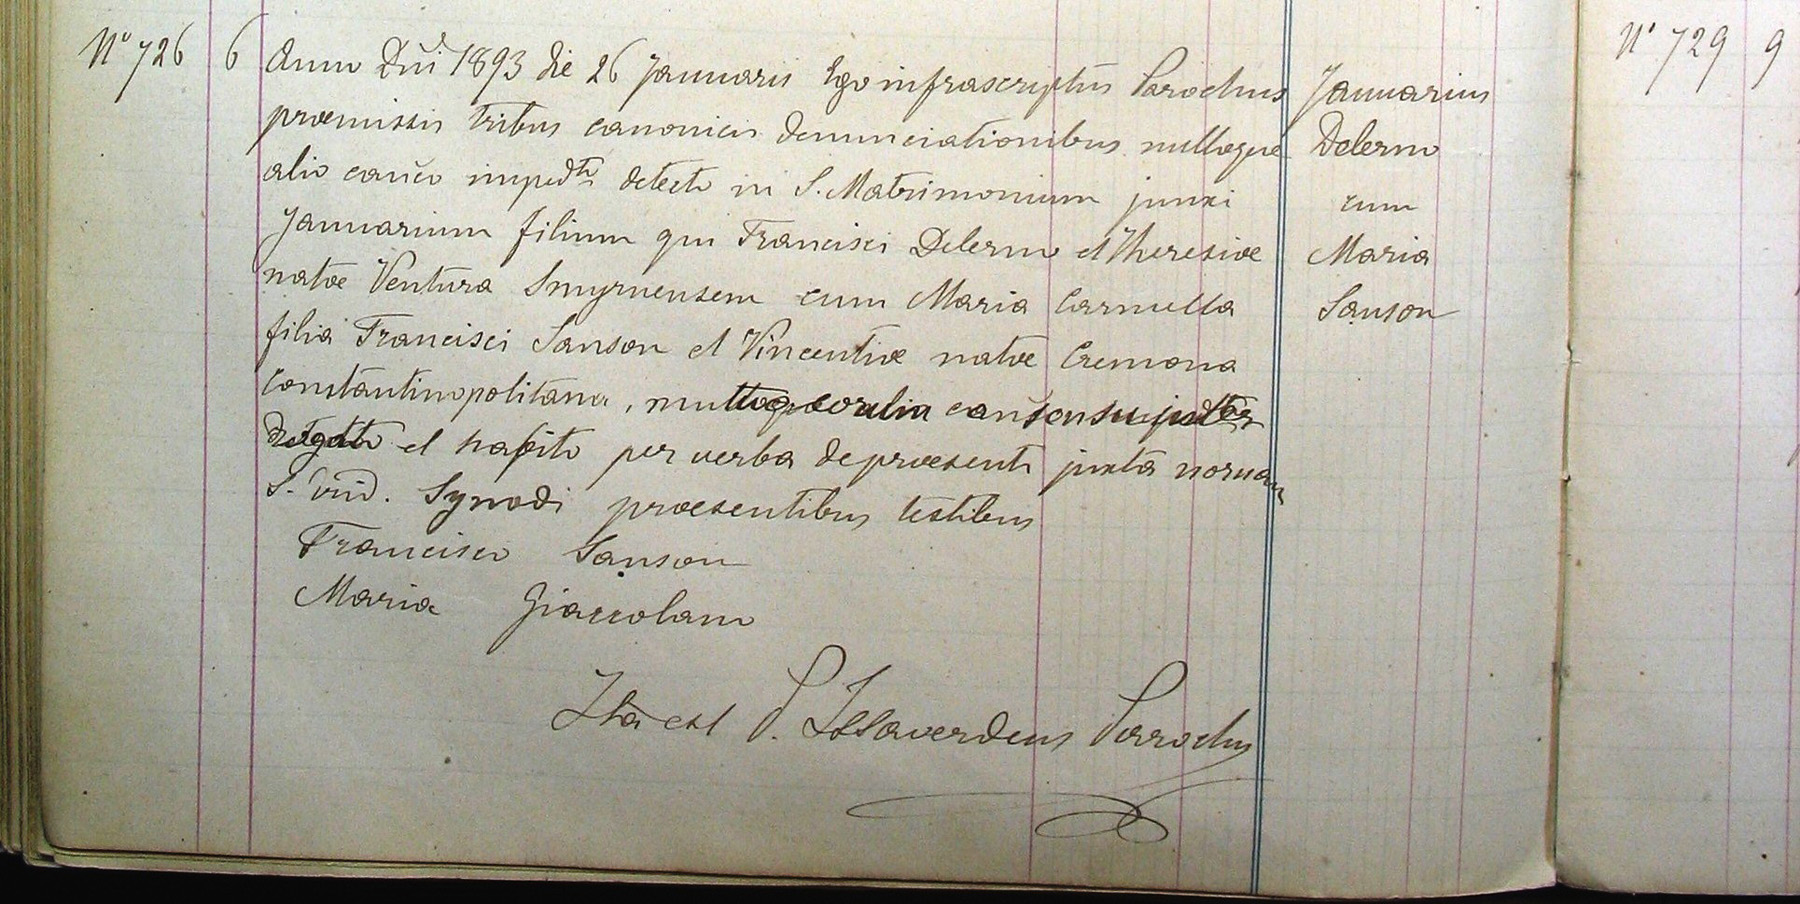 Nº 726 6 Anno Dñi 1893 die 26 Januaris Ego infrascriptus Parochus
præmissis tribus canonicis denunciationibus nulloque
alio canco impedto detecto in S. Matrimonium junxi
Januarium filium qm Francisci Delermo et Theresiæ
natæ Ventura Smyrnensem cum Maria Carmella
filia Francisci Sanson et Vincentiæ natæ Cremona
Constantinopolitana,
et habito per verba de præsenti juxta normam
S. Synodi præsentibus testibus
Francisco Sanson
Maria Giaccolamo
Ita est P. Issaverdens Parochus
Januarius
Delermo
cum
Maria
Sanson
Nº 729 9